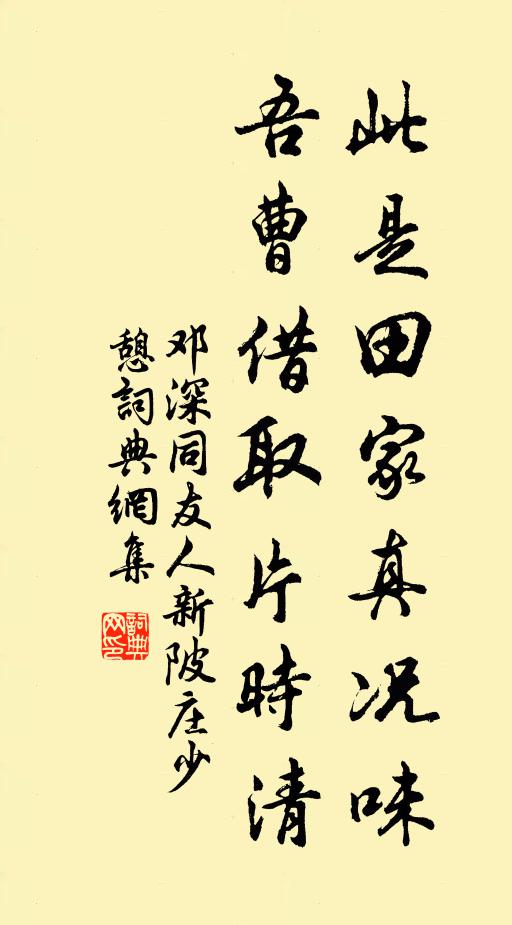 此是田家真况味
吾曹借取片時清
邓深同友人新陂庄少
憩詞典網集
詞典网印